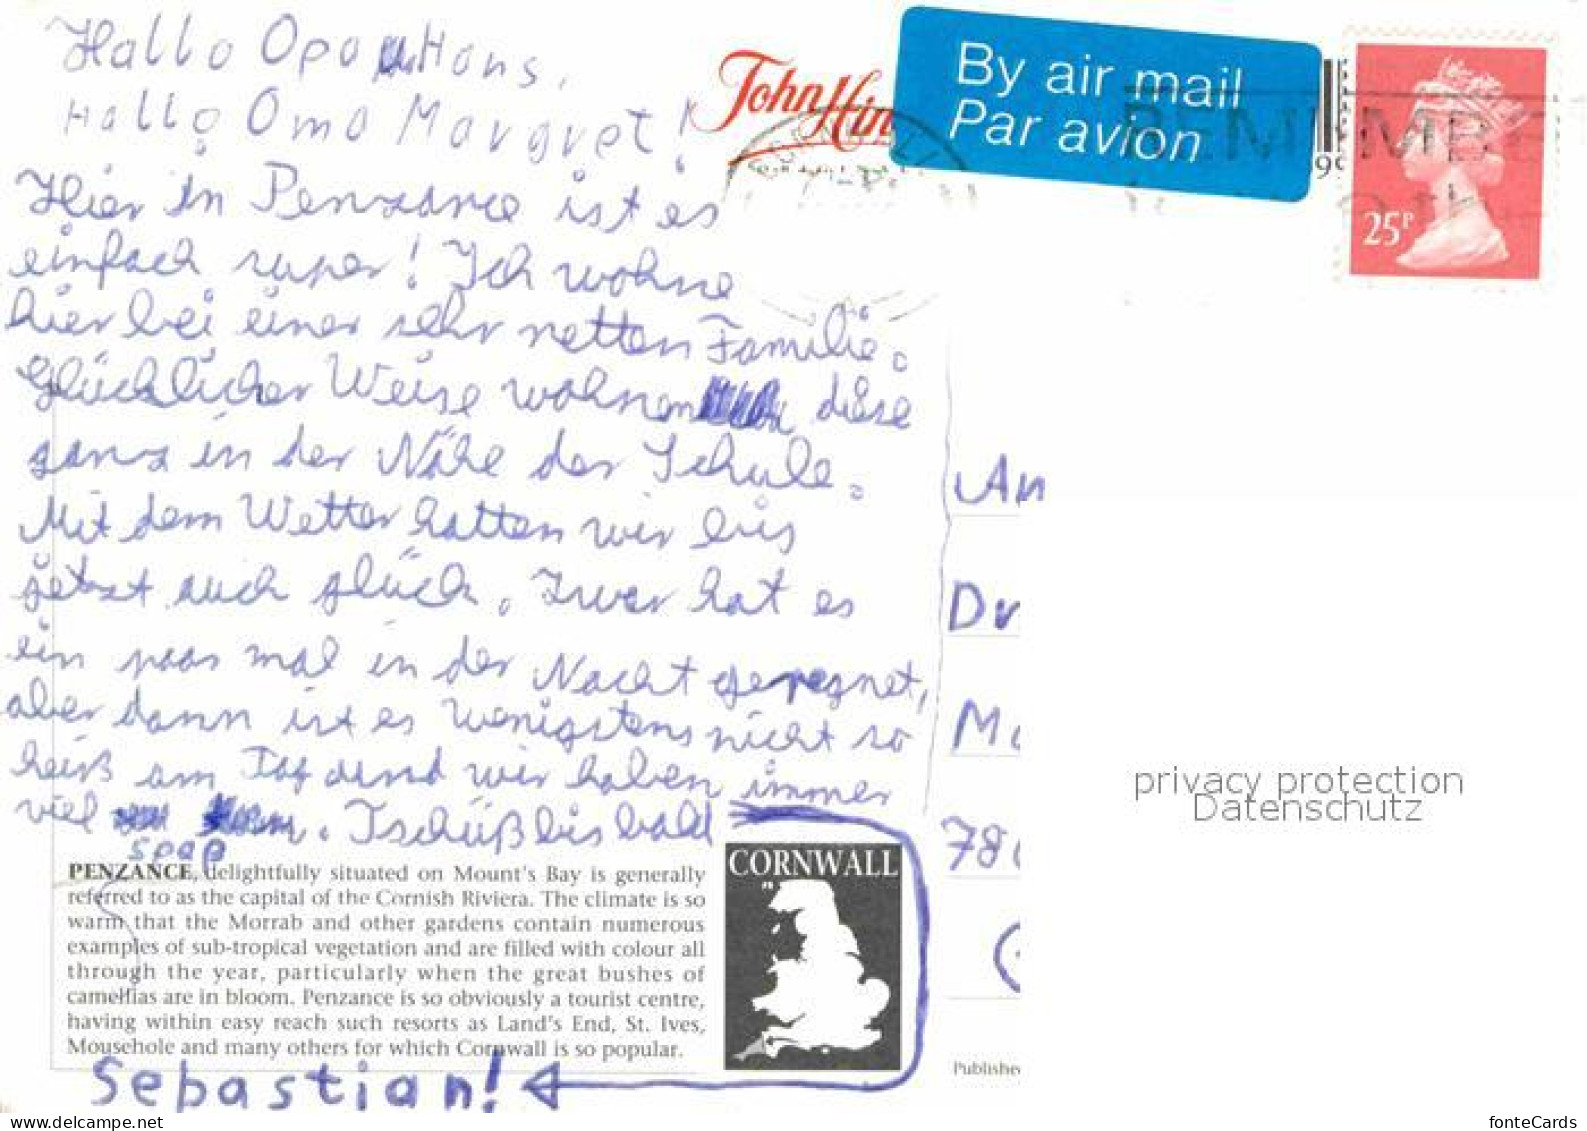 Hallo Opa Hans,
Hallo Oma Margret!
Hier in Penzance ist es
einfach super! Ich wohne
hier bei einer sehr netten Familie.
Glücklicher Weise wohnen diese
ganz in der Nähe der Schule.
Mit dem Wetter hatten wir bis
jetzt auch glück. Zwar hat es
ein paar mal in der Nacht geregnet,
aber dann ist es wenigstens nicht so
heiß am Tag und wir haben immer
viel spaß. Tschüß bis bald
Sebastian!
PENZANCE, delightfully situated on Mount's Bay is generally
referred to as the capital of the Cornish Riviera. The climate is so
warm that the Morrab and other gardens contain numerous
examples of sub-tropical vegetation and are filled with colour all
through the year, particularly when the great bushes of
camellias are in bloom. Penzance is so obviously a tourist centre,
having within easy reach such resorts as Land's End, St. Ives,
Mousehole and many others for which Cornwall is so popular.
CORNWALL
John Hin
By air mail
Par avion
REMEMB
25P
An
Dr
Publishe
privacy protection
Datenschutz
www.delcampe.net
fonteCards